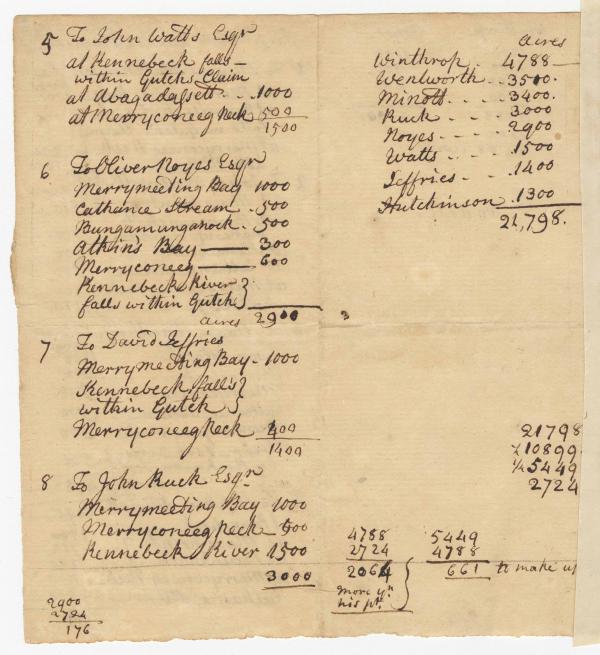 5 To John Watts Esqr
at Kennebeck falls –
within Gutchs Claim
at Abagadassett . . 1000
at Merryconeeg Neck 500
1500
6 To Oliver Noyes Esqr
Merrymeeting Bay 1000
Cathance Stream . 500
Bungamunganock . 500
Atkins Bay — 300
Merryconeeg — 600
Kennebeck River }
falls within Gutch }
acres 2900
7 To David Jeffries
Merrymeeting Bay . 1000
Kennebeck falls }
within Gutch }
Merryconeeg Neck 400
1400
8 To John Ruck Esqr
Merrymeeting Bay 1000
Merryconeeg Neck 500
Kennebeck River 1500
3000
2900
2724
176
acres
Winthrop . 4788 —
Wentworth . . 3500.
Minott . . . . 3400.
Ruck . . . . 3000
Noyes . . . . 2900
Watts . . . . 1500
Jeffries . . . 1400
Hutchinson . 1300
21,798.
21798
½ 10899
¼ 5449
2724
4788
2724
2064
more yn
his pt. }
5449
4788
661 to make up